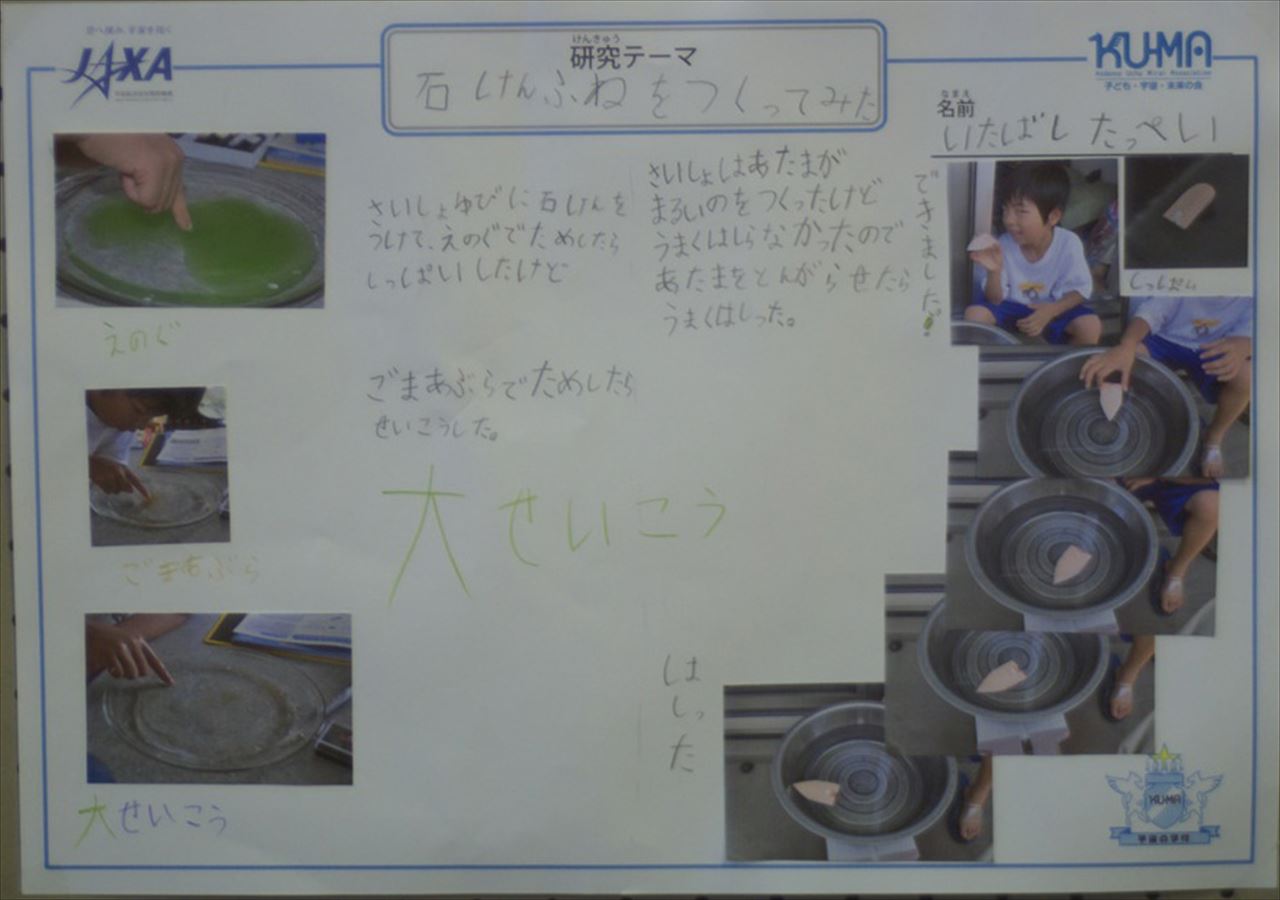 空へ挑み、宇宙を拓く
JAXA
けんきゅう
研究テーマ
石けんふねをつくってみた
KU-MA
Kodomo Uchu Mirai Association
子ども・宇宙・未来の会
なまえ
名前
いたばし たっぺい
さいしょゆびに石けんを
つけて、えのぐでためしたら
しっぱいしたけど
ごまあぶらでためしたら
せいこうした。
大せいこう
さいしょはあたまが
まるいのをつくったけど
うまくはしらなかったので
あたまをとんがらせたら
うまくはしった。
できました!
しっぱい
えのぐ
ごまあぶら
大せいこう
はしった
KU-MA